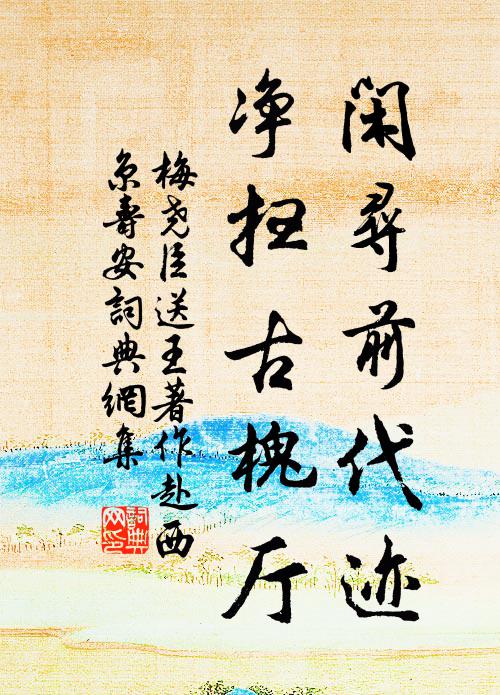 闲寻前代迹
净扫古槐厅
梅尧臣送王著作赴西
京寿安词典網集
詞典
网印